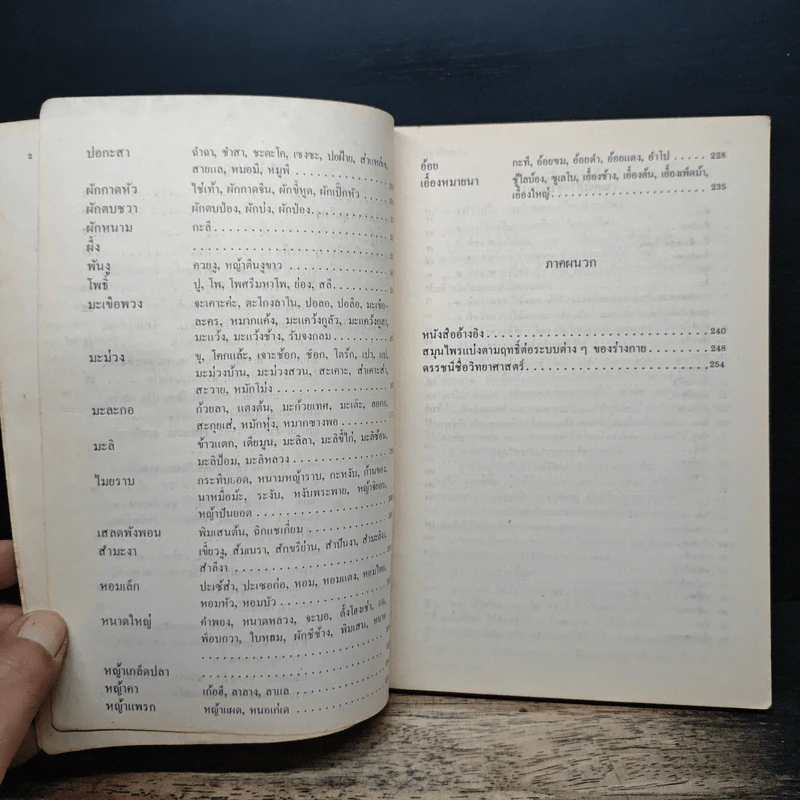 2
ปอกะสา ฉำฉา, ชำสา, ชะตะโค, เซงซะ, ปอฝ้าย, ส่าแหล่ง,
สายแล, หมอมี, หมูพี
ผักกาดหัว ไช่เท้า, ผักกาดจีน, ผักขี้หูด, ผักเปิ๊กหัว
ผักตบชวา ผักตบป่อง, ผักบ่ง, ผักป่อง
ผักหนาม กะลี
ผึ้ง
พันงู ควยงู, หญ้าตีนงูขาว
โพธิ์ ปู, โพ, โพศรีมหาโพ, ย่อง, สลี
มะเขือพวง จะเคาะค่ะ, ตะโกงลาโน, ปอลอ, ปอลือ, มะเขือ-
ละคร, หมากแค้ง, มะแคว้งกูลัว, มะแคว้งกูลา,
มะแว้ง, มะแว้งช้าง, รับจงกลม
มะม่วง ขุ, โคกแล้ะ, เจาะช๊อก, ช๊อก, โตร้ก, เปา, แป,
มะม่วงบ้าน, มะม่วงสวน, สะเคาะ, สำเคาะส่า,
สะวาย, หมักโม่ง
มะละกอ ก้วยลา, แตงต้น, มะก้วยเทศ, มะเต๊ะ, ลอกอ,
สะกุยเส่, หมักหุ่ง, หมากซางพอ
มะลิ ข้าวแตก, เตียมูน, มะลิลา, มะลิขี้ไก่, มะลิซ้อน,
มะลิป้อม, มะลิหลวง
ไมยราบ กระทืบยอด, หนามหญ้าราบ, กะหงับ, ก้านของ,
นาหมื่อม้ะ, ระงับ, หงับพระพาย, หญ้าจิยอบ,
หญ้าปันยอด
เสลดพังพอน พิมเสนต้น, ฉิกแชเกี่ยม
สำมะงา เขี้ยวงู, สัมเนรา, สักขรีย่าน, สำปันงา, สำมะลีงา,
สำลีงา
หอมเล็ก ปะเซ้ส่า, ปะเซอก่อ, หอม, หอมแดง, หอมไทย,
หอมหัว, หอมบัว
หนาดใหญ่ คำพอง, หนาดหลวง, จะบอ, ตั้งโฮงเช่า,
พ็อบกวา, ใบหลม, ผักชีช้าง, พิมเสน, หนาด
หญ้าเกล็ดปลา
หญ้าคา เก้อฮี, ลาลาง, ลาแล
หญ้าแพรก หญ้าแผด, หนอเก่เด
อ้อย กะที, อ้อยขม, อ้อยดำ, อ้อยแดง, อำโป 228
เอื้องหมายนา ชู้ไลบ้อง, ชูเลโบ, เอื้องช้าง, เอื้องต้น, เอื้องเพ็ดม้า,
เอื้องใหญ่ 235
ภาคผนวก
หนังสืออ้างอิง 240
สมุนไพรแบ่งตามฤทธิ์ต่อระบบต่าง ๆ ของร่างกาย 248
ดรรชนีชื่อวิทยาศาสตร์ 254